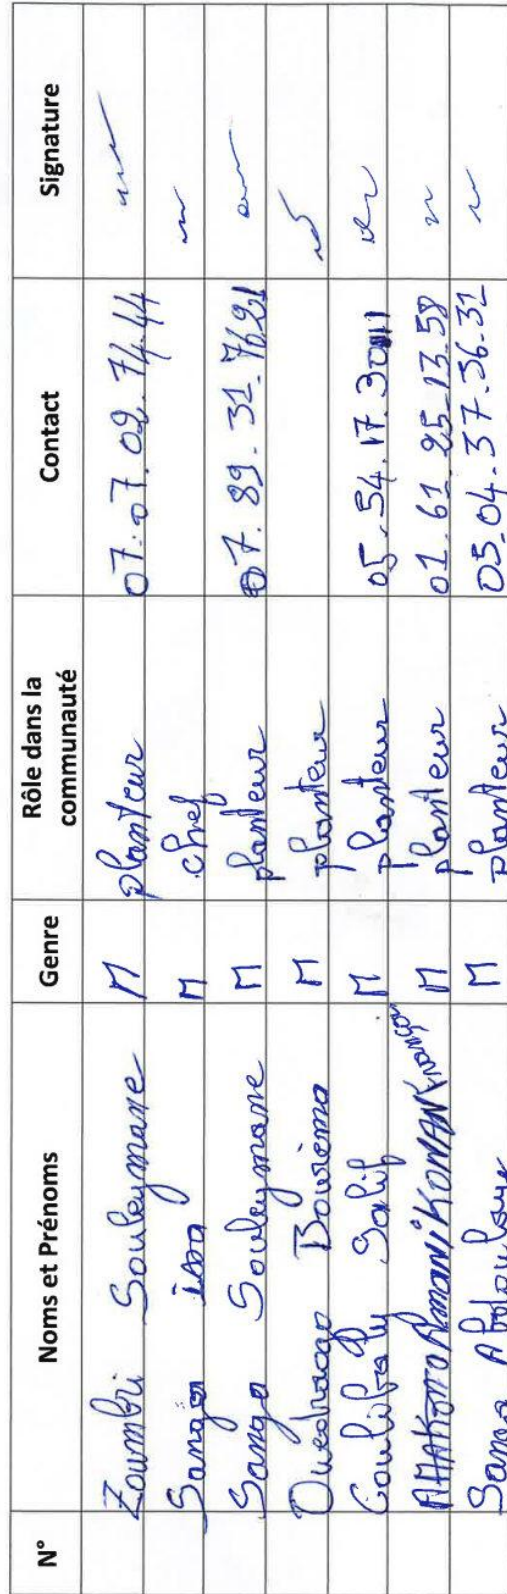 N° Noms et Prénoms Genre Rôle dans la communauté Contact Signature
Zoumbri Souleymane M planteur 07.07.02.74.44
Sanga issa M chef
Sanga Souleymane M planteur 07.89.31.7621
Ouédraogo Boureima M planteur
Coulibaly Salif M planteur 05.54.17.30
KOUAN M planteur 01.61.25.13.58
Sanga Abdoulaye M planteur 05.04.37.36.32